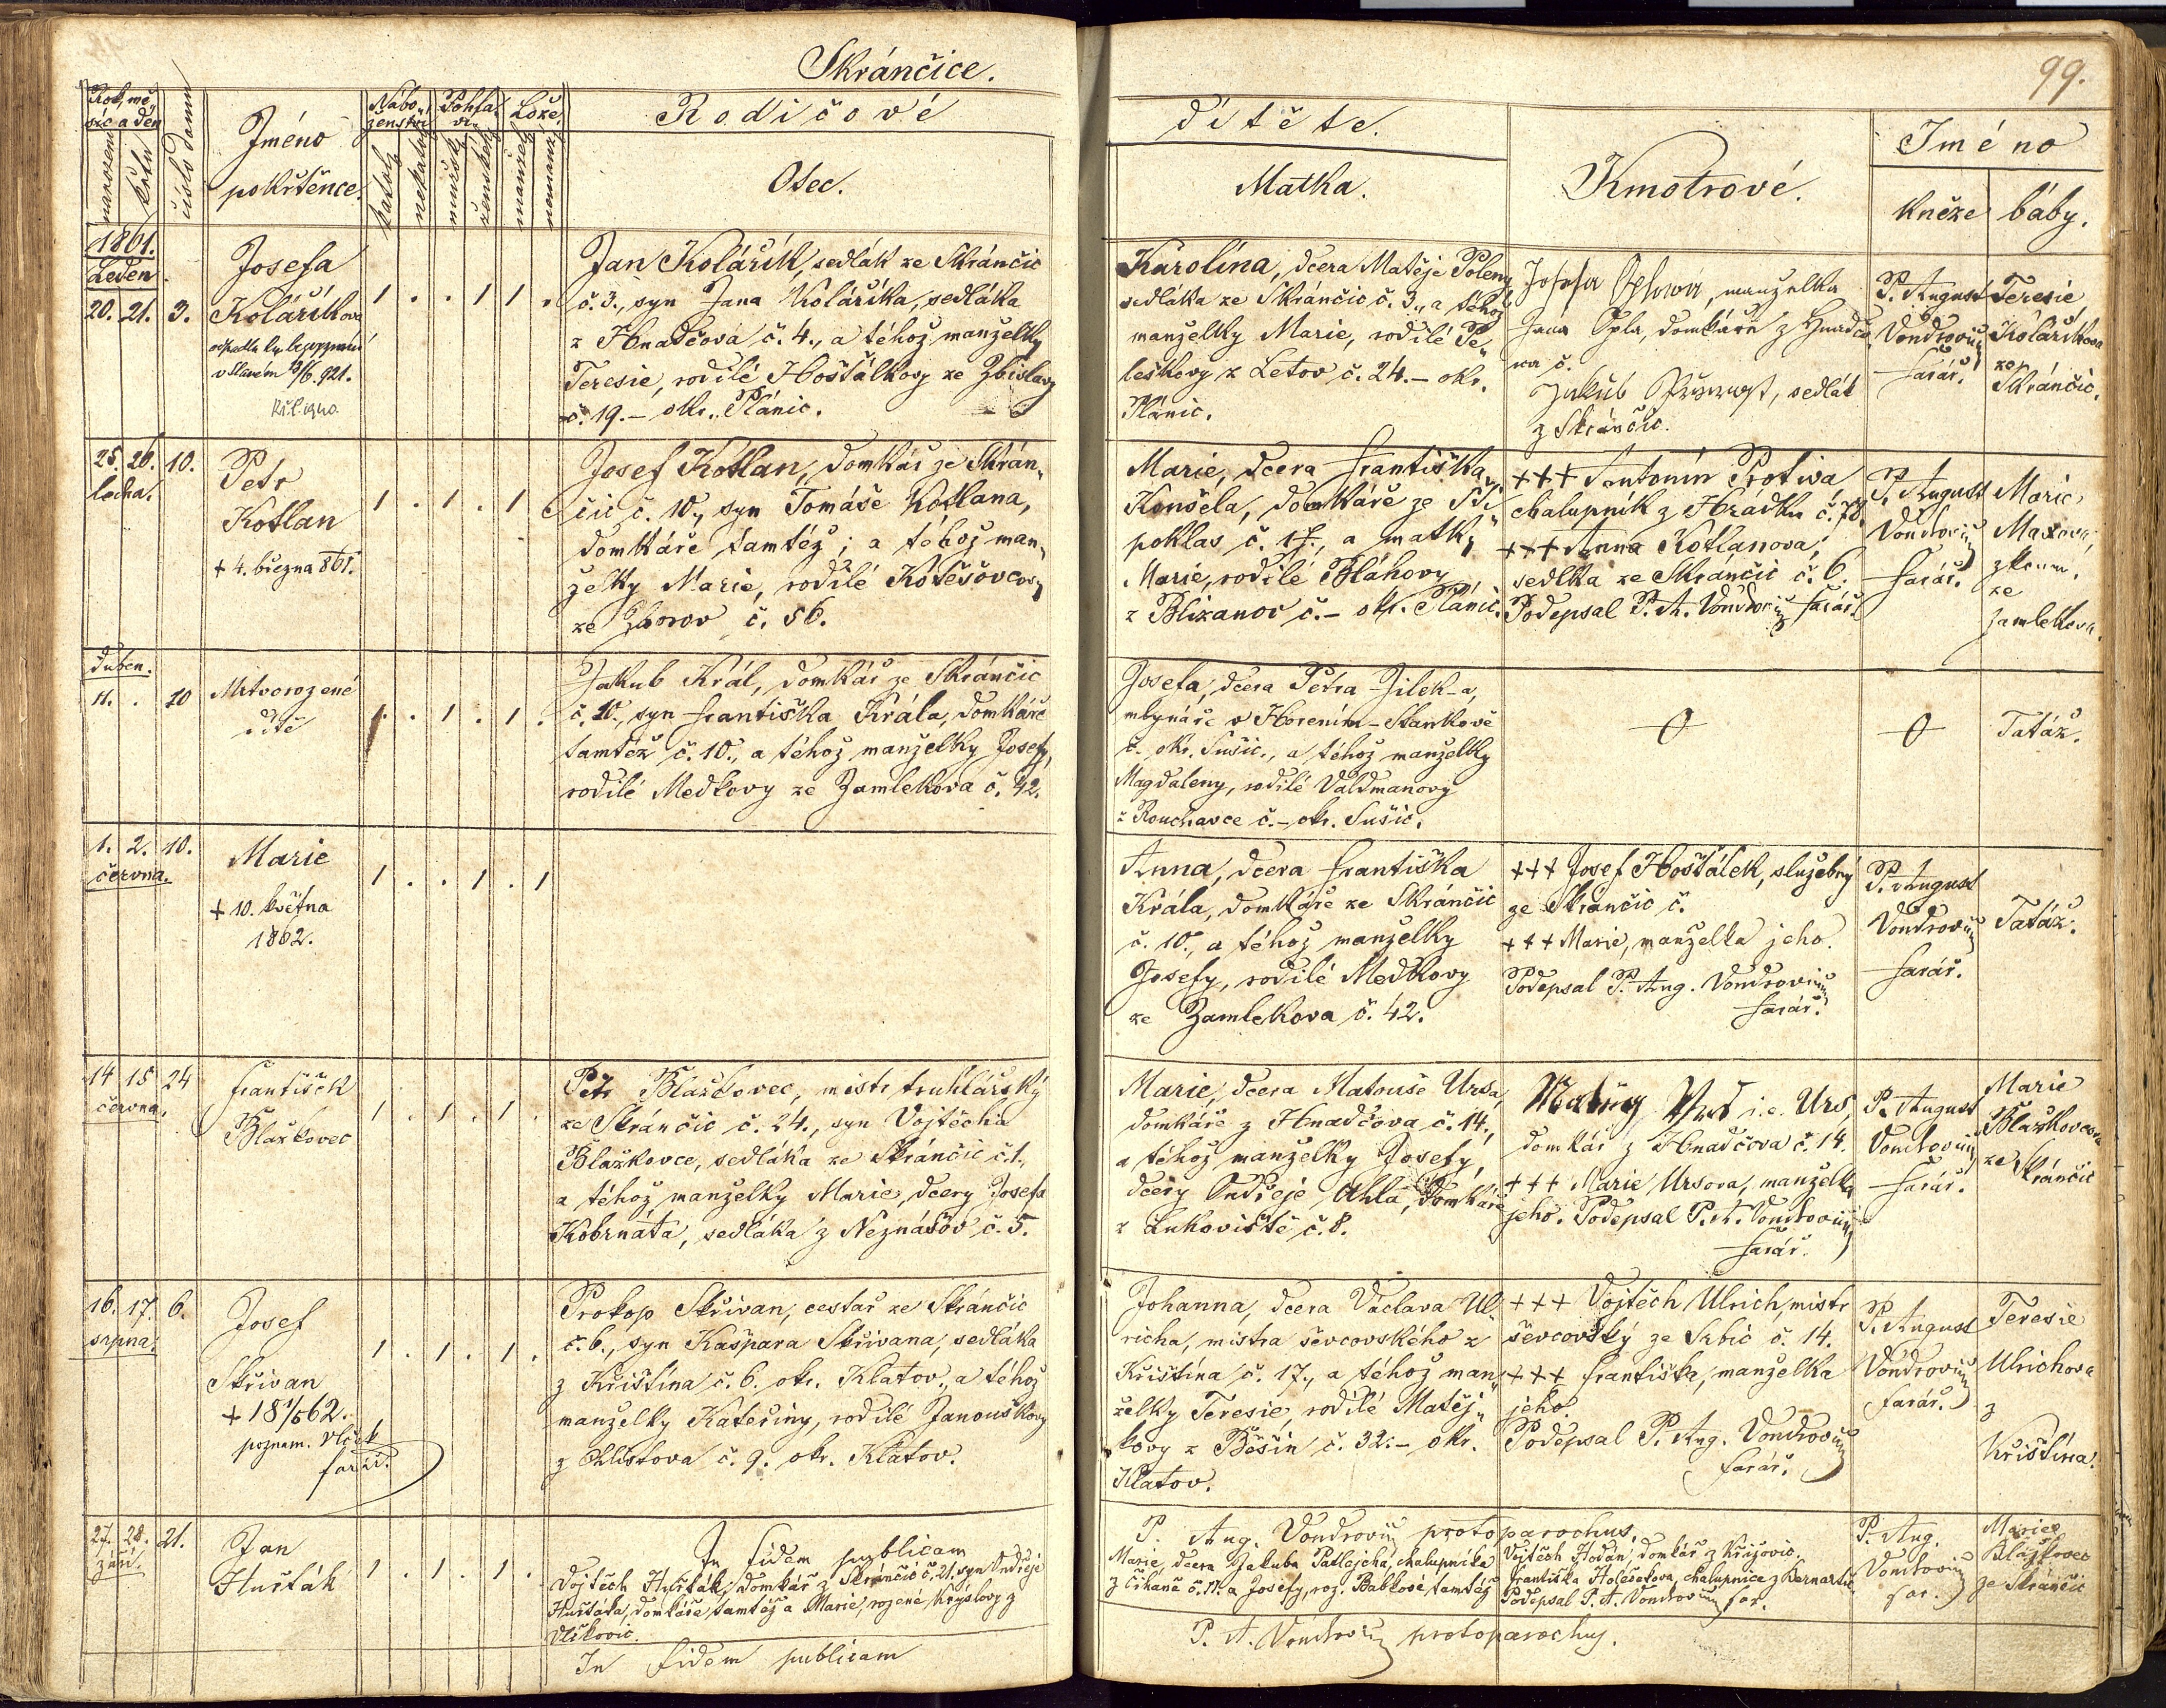 Skránčice.
99.
Rok, mě„
síc a den
narození
křtu
číslo domu
Jméno
pokřtěnce.
Nábo„
ženství
katol.
nekatol.
Pohla„
ví.
mužské
ženské
Lože.
manžel.
nemanž.
Rodičové
Otec.
dítěte.
Matka.
Kmotrové.
Jméno
kněze
báby.
1861.
Leden.
20. 21. 3.
Josefa
Koláříkova
v Slivném 13/6. 921.
1 . . 1 1 .
Jan Kolářík, sedlák ze Skránčic
č. 3., syn Jana Kolaříka, sedláka
z Hnačova č. 4., a téhož manželky
Teresie, rodilé Hoštálkovy ze Zbislavy
č. 19. – okr. Plánic.
Karolína, dcera Matěje Poleny
sedláka ze Skránčic č. 3., a téhož
manželky Marie, rodilé Pe„
leškovy z Letov č. 24. – okr.
Plánic.
Josefa Oplová, manželka
Jana Opla, domkáře z Hnadčo„
va č.
Jakub, sedlák
z Skránčic.
P. August
Vondrovic
farář.
Teresie
Koláříkova
ze
Skránčic.
25. 26. 10.
ledna.
Petr
Kotlan
+ 4. března 861.
1 . 1 . 1
Josef Kotlan, domkář ze Skrán„
čic č. 10., syn Tomáše Kotlana,
domkáře tamtéž; a téhož man„
želky Marie, rodilé Kotěšovcovy
ze Zborov č. 56.
Marie, dcera Františka
Konšela, domkáře ze Při„
poklas č. 17., a matky
Marie, rodilé Bláhovy
z Blizanov č. – okr. Plánic.
+++ Antonín Protiva
chalupník z Hrádku č. 78.
+++ Anna Kotlanova,
sedlka ze Skránčic č. 6.
Podepsal P. A. Vondrovic farář.
P. August
Vondrovic
farář.
Marie
Maxova,
zkouš.
ze
Zamlekova.
Duben.
11. . 10
Mrtvorozené
dítě
1 . . 1 . 1 .
Jakub Král, domkář ze Skránčic
č. 10., syn Františka Krále, domkáře
tamtéž č. 10., a téhož manželky Josefy,
rodilé Medkovy ze Zamlekova č. 42.
Josefa, dcera Petra Jilek-a,
mlynáře v Horením-Stankově
č. okr. Sušic., a téhož manželky
Magdaleny, rodilé Valdmanovy
z Rouchavce č. – okr. Sušic.
Tatáž.
1. 2. 10.
června.
Marie
+ 10. května
1862.
1 . . 1 . 1
Anna, dcera Františka
Krála, domkáře ze Skránčic
č. 10., a téhož manželky
Josefy, rodilé Medkovy
ze Zamlekova č. 42.
+++ Josef Hoštálek, služebný
ze Skrančic č.
+++ Marie, manželka jeho.
Podepsal P. Aug. Vondrovic
farář.
P. August
Vondrovic
farář.
Tatáž.
14 15 24
června.
František
Blažkovec
1 . 1 . 1 .
Petr Blažkovec, mistr truhlářský
ze Skránčic č. 24., syn Vojtěcha
Blažkovce, sedláka ze Skránčic č. 1.,
a téhož manželky Marie, dcery Josefa
Kobrnata, sedláka z Neznášov č. 5.
Marie, dcera Matouše Ursa,
domkáře z Hnadčova č. 14.,
a téhož manželky Josefy,
dcery Ondřeje Uhla, domkáře
z Lukoviště č. 8.
Matouš Urs i. e. Urs,
domkář z Hnadčova č. 14.
+++ Marie Ursova, manželka
jeho. Podepsal P. A. Vondrovic
farář.
P. August
Vondrovic
farář.
Marie
Blažkovcova
ze Skránčic
16. 17. 6.
srpna.
Josef
Skřivan
+ 18 1/5 62.
poznam. Vlček
farář.
1 . 1 . 1 .
Prokop Skřivan, cestář ze Skránčic
č. 6., syn Kašpara Skřivana, sedláka
z Křištína č. 6. okr. Klatov., a téhož
manželky Kateřiny, rodilé Janouškovy
z Chlistova č. 9. okr. Klatov.
Johanna, dcera Václava Ul„
richa, mistra ševcovského z
Křištína č. 17., a téhož man„
želky Teresie, rodilé Matěj„
kovy z Běšin č. 32. – okr.
Klatov.
+++ Vojtěch Ulrich, mistr
ševcovský ze Srbic č. 14.
+++ Františka, manželka
jeho.
Podepsal P. Aug. Vondrovic
farář.
P. August
Vondrovic
farář.
Teresie
Ulrichova
z
Křištína.
In fidem publicam
P. Aug. Vondrovic protoparochus.
27. 28. 21.
září.
Jan
Husták
1 . 1 . 1 .
Vojtěch Husták, domkář z Skránčic č. 21, syn Ondřeje
Hustáka, domkáře tamtéž a Marie, rozené Kryslovy z
Vlčkovic.
Marie, dcera Jakuba Patlejcha, chalupníka
z Čihaně č. 11. a Josefy, roz. Babkové tamtéž
Vojtěch Hodán, domkář z Křižovic.
Františka Holešekova, chalupnice z Bernartic
Podepsal P. A. Vondrovic far.
P. Aug.
Vondrovic
far.
Marie
Blažkovec
ze Skránčic
In fidem publicam
P. A. Vondrovic protoparochus.